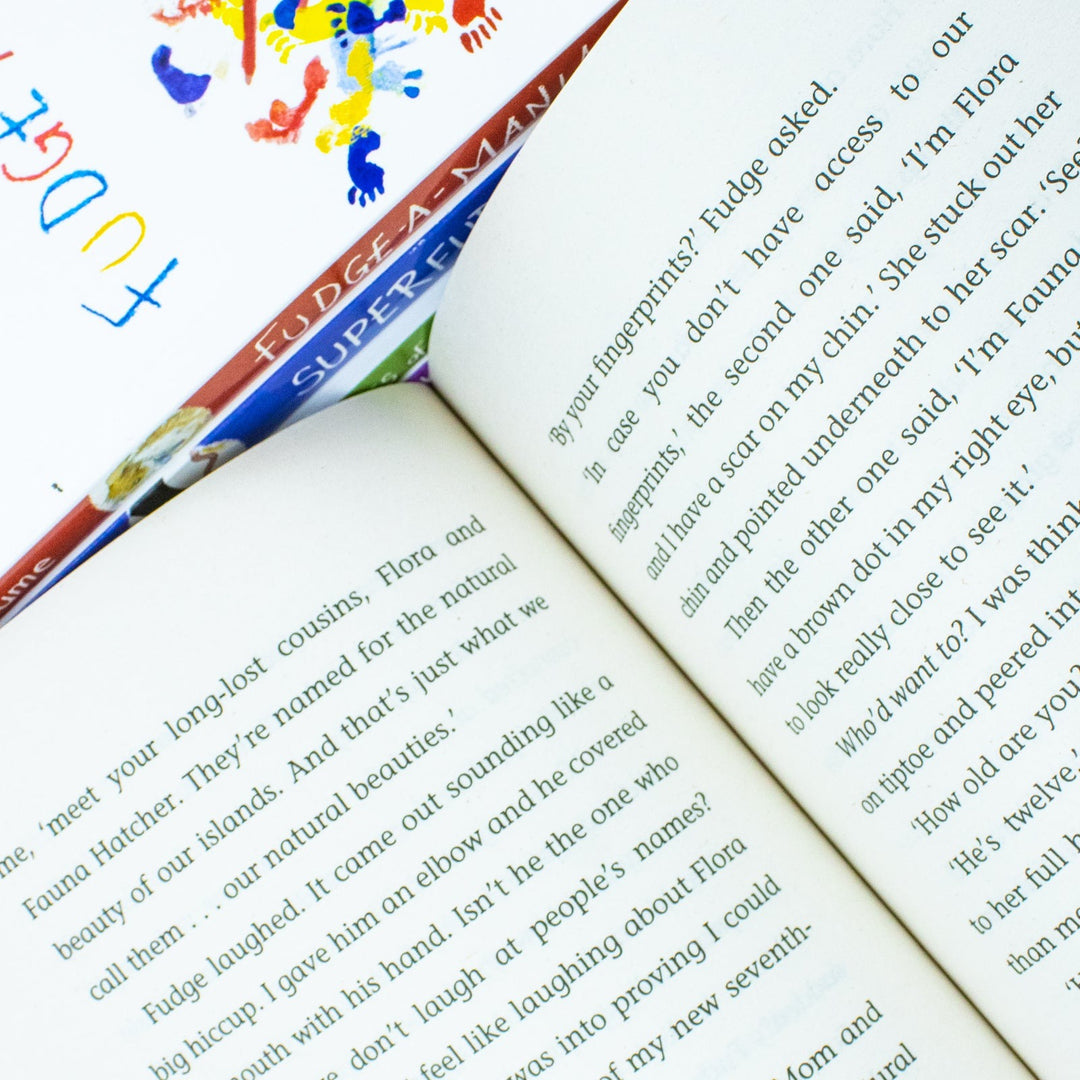 FUDGE
FUDGE-A-MANIA
SUPERFUD
ume
me, ‘meet your long-lost cousins, Flora and
Fauna Hatcher. They’re named for the natural
beauty of our islands. And that’s just what we
call them . . . our natural beauties.’
Fudge laughed. It came out sounding like a
big hiccup. I gave him an elbow and he covered
mouth with his hand. Isn’t he the one who
don’t laugh at people’s names?
feel like laughing about Flora
was into proving I could
of my new seventh-
Mom and
‘By your fingerprints?’ Fudge asked.
‘In case you don’t have access to our
fingerprints,’ the second one said, ‘I’m Flora
and I have a scar on my chin.’ She stuck out her
chin and pointed underneath to her scar. ‘See
Then the other one said, ‘I’m Fauna
have a brown dot in my right eye, bu
to look really close to see it.’
Who’d want to? I was think
on tiptoe and peered int
‘How old are you?
‘He’s twelve,’
to her full h
than m